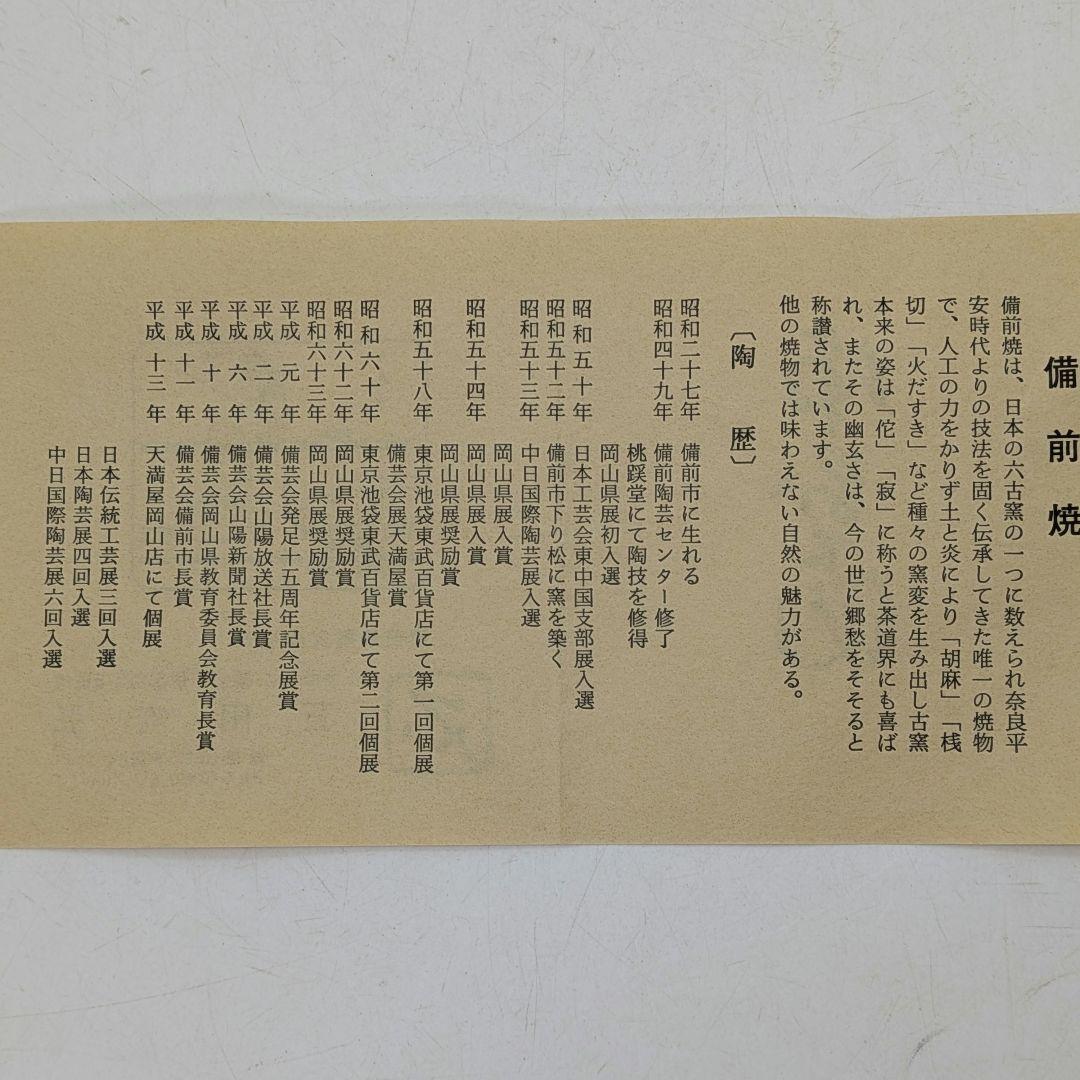 備前焼
備前焼は、日本の六古窯の一つに数えられ奈良平
安時代よりの技法を固く伝承してきた唯一の焼物
で、人工の力をかりず土と炎により「胡麻」「桟
切」「火だすき」など種々の窯変を生み出し古窯
本来の姿は「侘」「寂」に称うと茶道界にも喜ば
れ、またその幽玄さは、今の世に郷愁をそそると
称讃されています。
他の焼物では味わえない自然の魅力がある。
〔陶　歴〕
昭和二十七年　備前市に生れる
昭和四十九年　備前陶芸センター修了
桃蹊堂にて陶技を修得
岡山県展初入選
昭和五十年　日本工芸会東中国支部展入選
昭和五十二年　備前市下り松に窯を築く
昭和五十三年　中日国際陶芸展入選
岡山県展入賞
昭和五十四年　岡山県展入賞
岡山県展奨励賞
昭和五十八年　東京池袋東武百貨店にて第一回個展
備芸会展天満屋賞
昭和六十年　東京池袋東武百貨店にて第二回個展
昭和六十二年　岡山県展奨励賞
昭和六十三年　岡山県展奨励賞
平成元年　備芸会発足十五周年記念展賞
平成二年　備芸会山陽放送社長賞
平成六年　備芸会山陽新聞社長賞
平成十年　備芸会岡山県教育委員会教育長賞
平成十一年　備芸会備前市長賞
平成十三年　天満屋岡山店にて個展
日本伝統工芸展三回入選
日本陶芸展四回入選
中日国際陶芸展六回入選